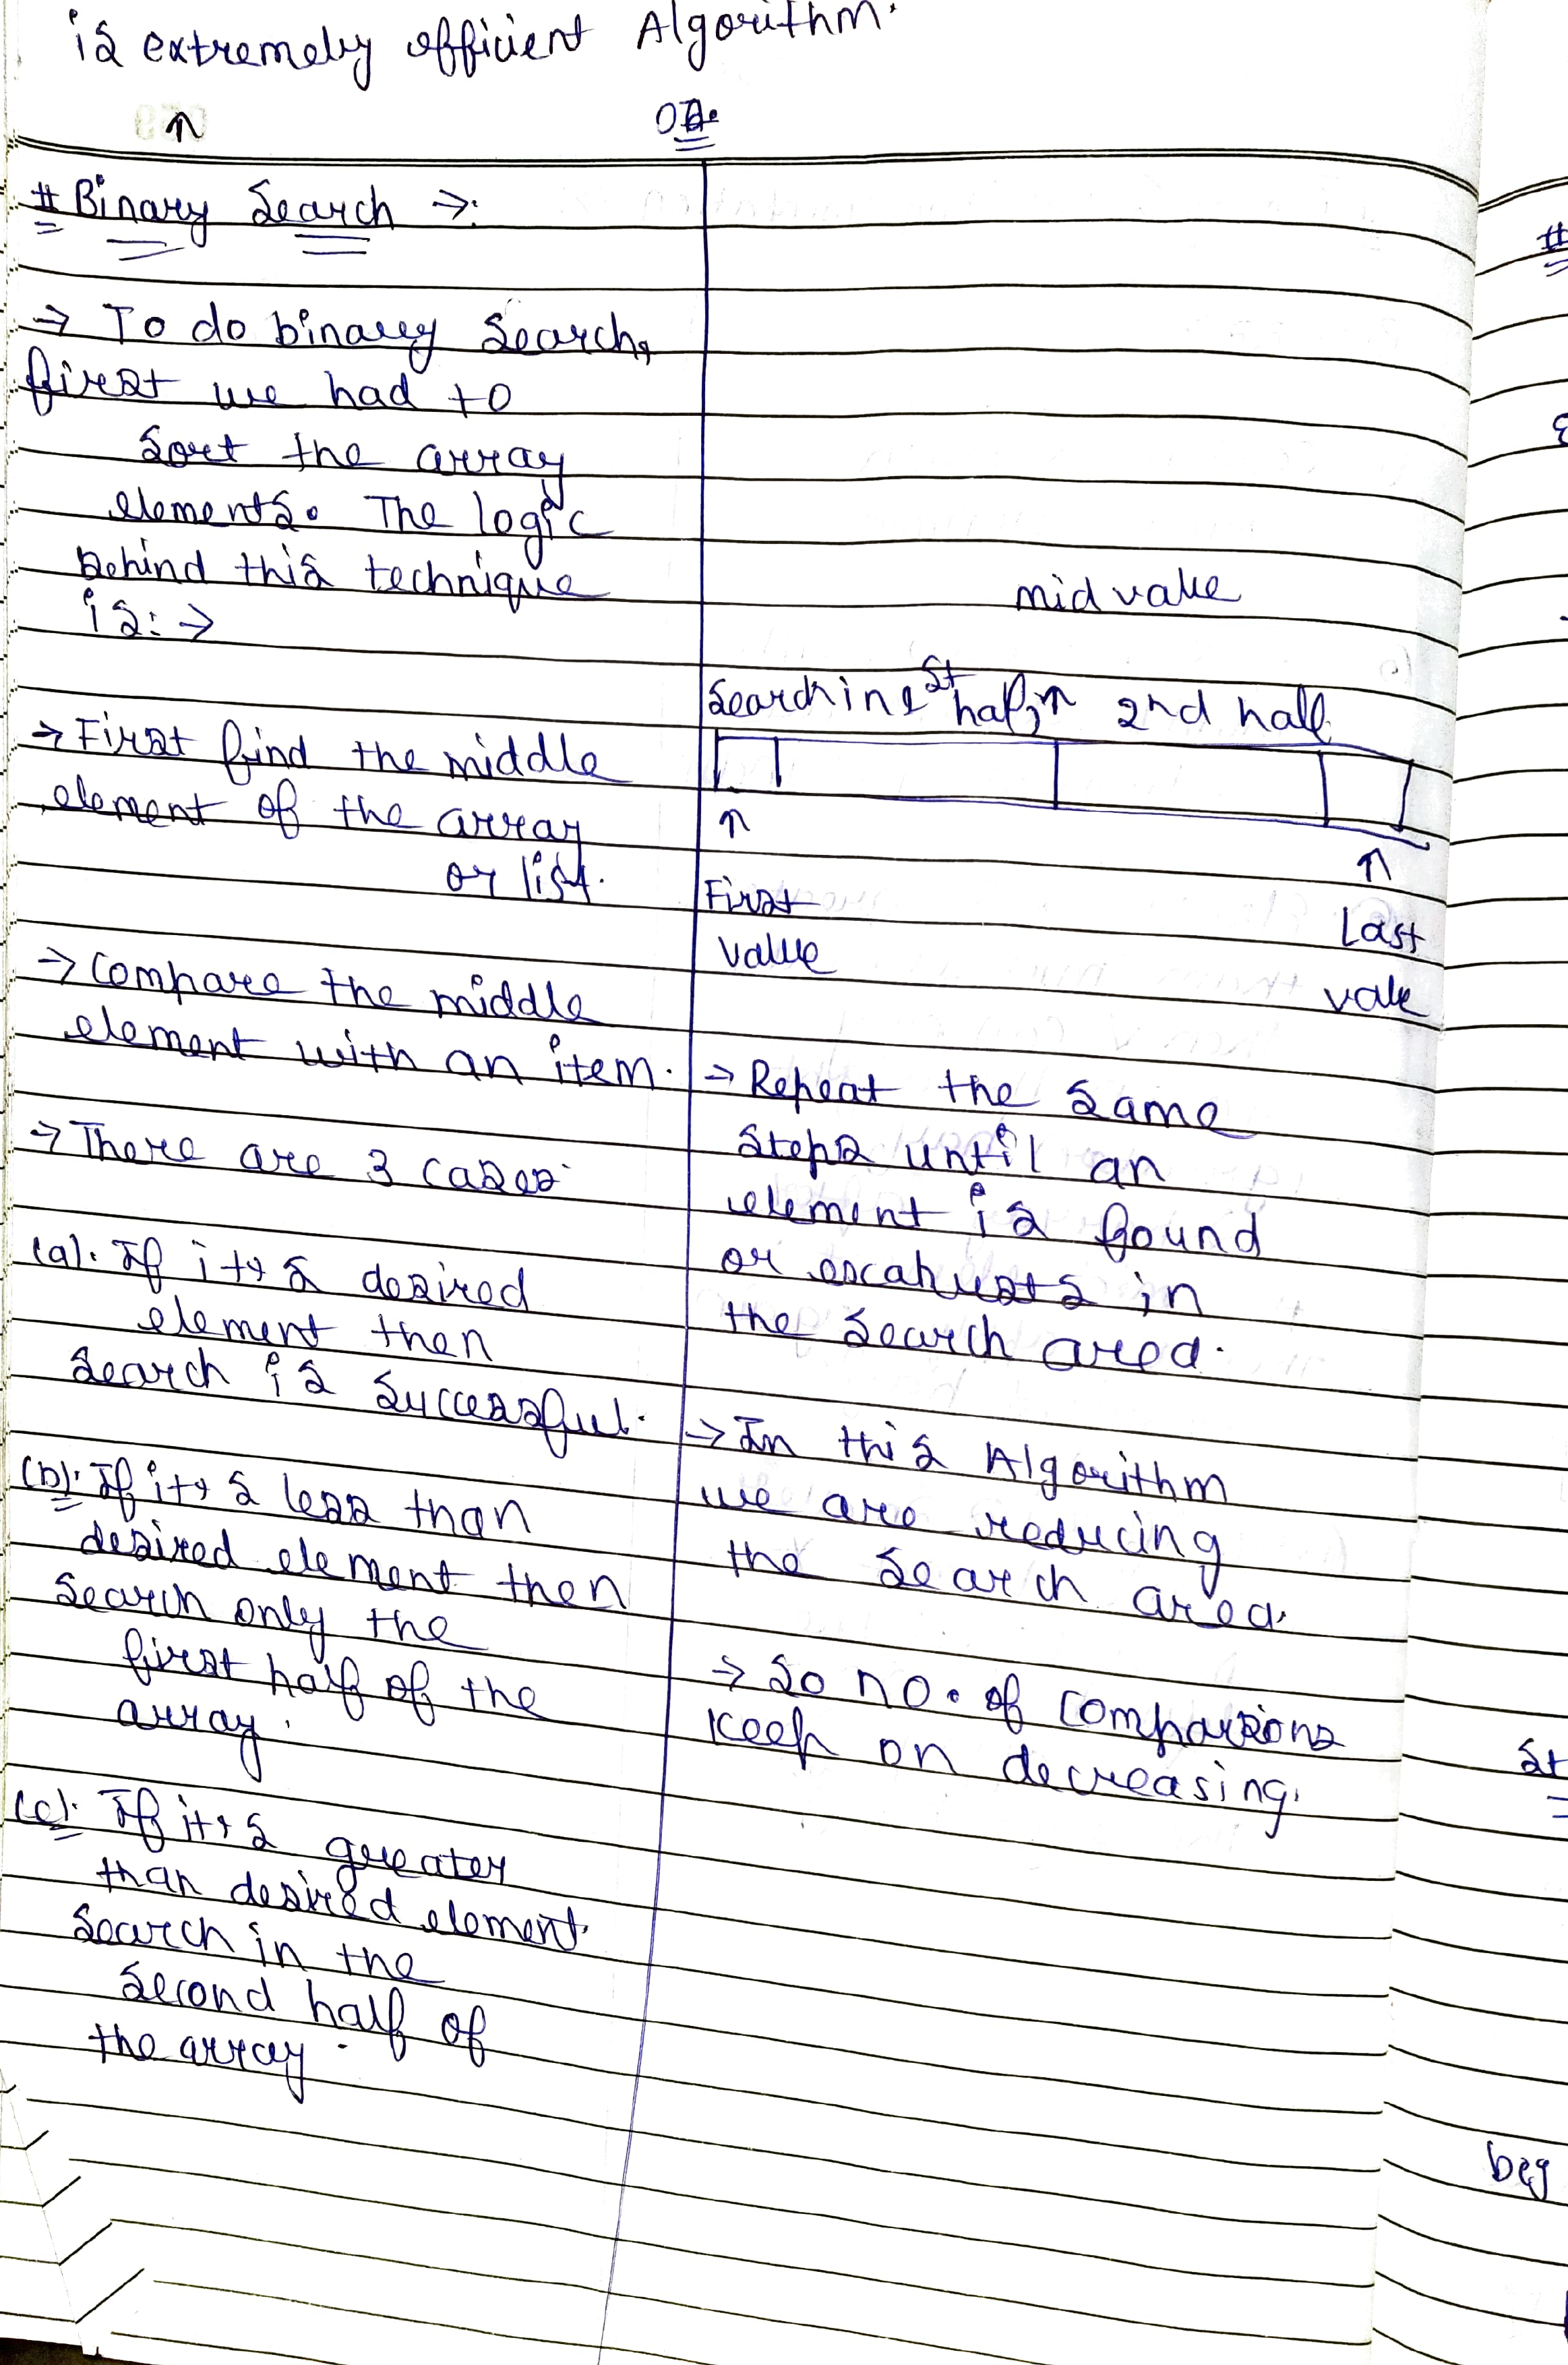 is extremely efficient Algorithm.
# Binary Search →:
→ To do binary Search,
first we had to
Sort the array
elements. The logic
Behind this technique
is: →
→ First find the middle
element of the array
or list.
→ Compare the middle
element with an item.
→ There are 3 cases.
(a). If it's desired
element then
Search is Successful.
(b). If it's less than
desired element then
Search only the
first half of the
array.
(c). If it's greater
than desired element.
Search in the
Second half of
the array.
mid value
Search in 1st half ↑ 2nd half
↑ ↑
First Last
value value
→ Repeat the Same
Steps until an
element is found
or excahusts in
the Search area.
→ In this Algorithm
we are reducing
the Search area.
→ So no. of Comparisons
Keep on decreasing.
#
St
beg